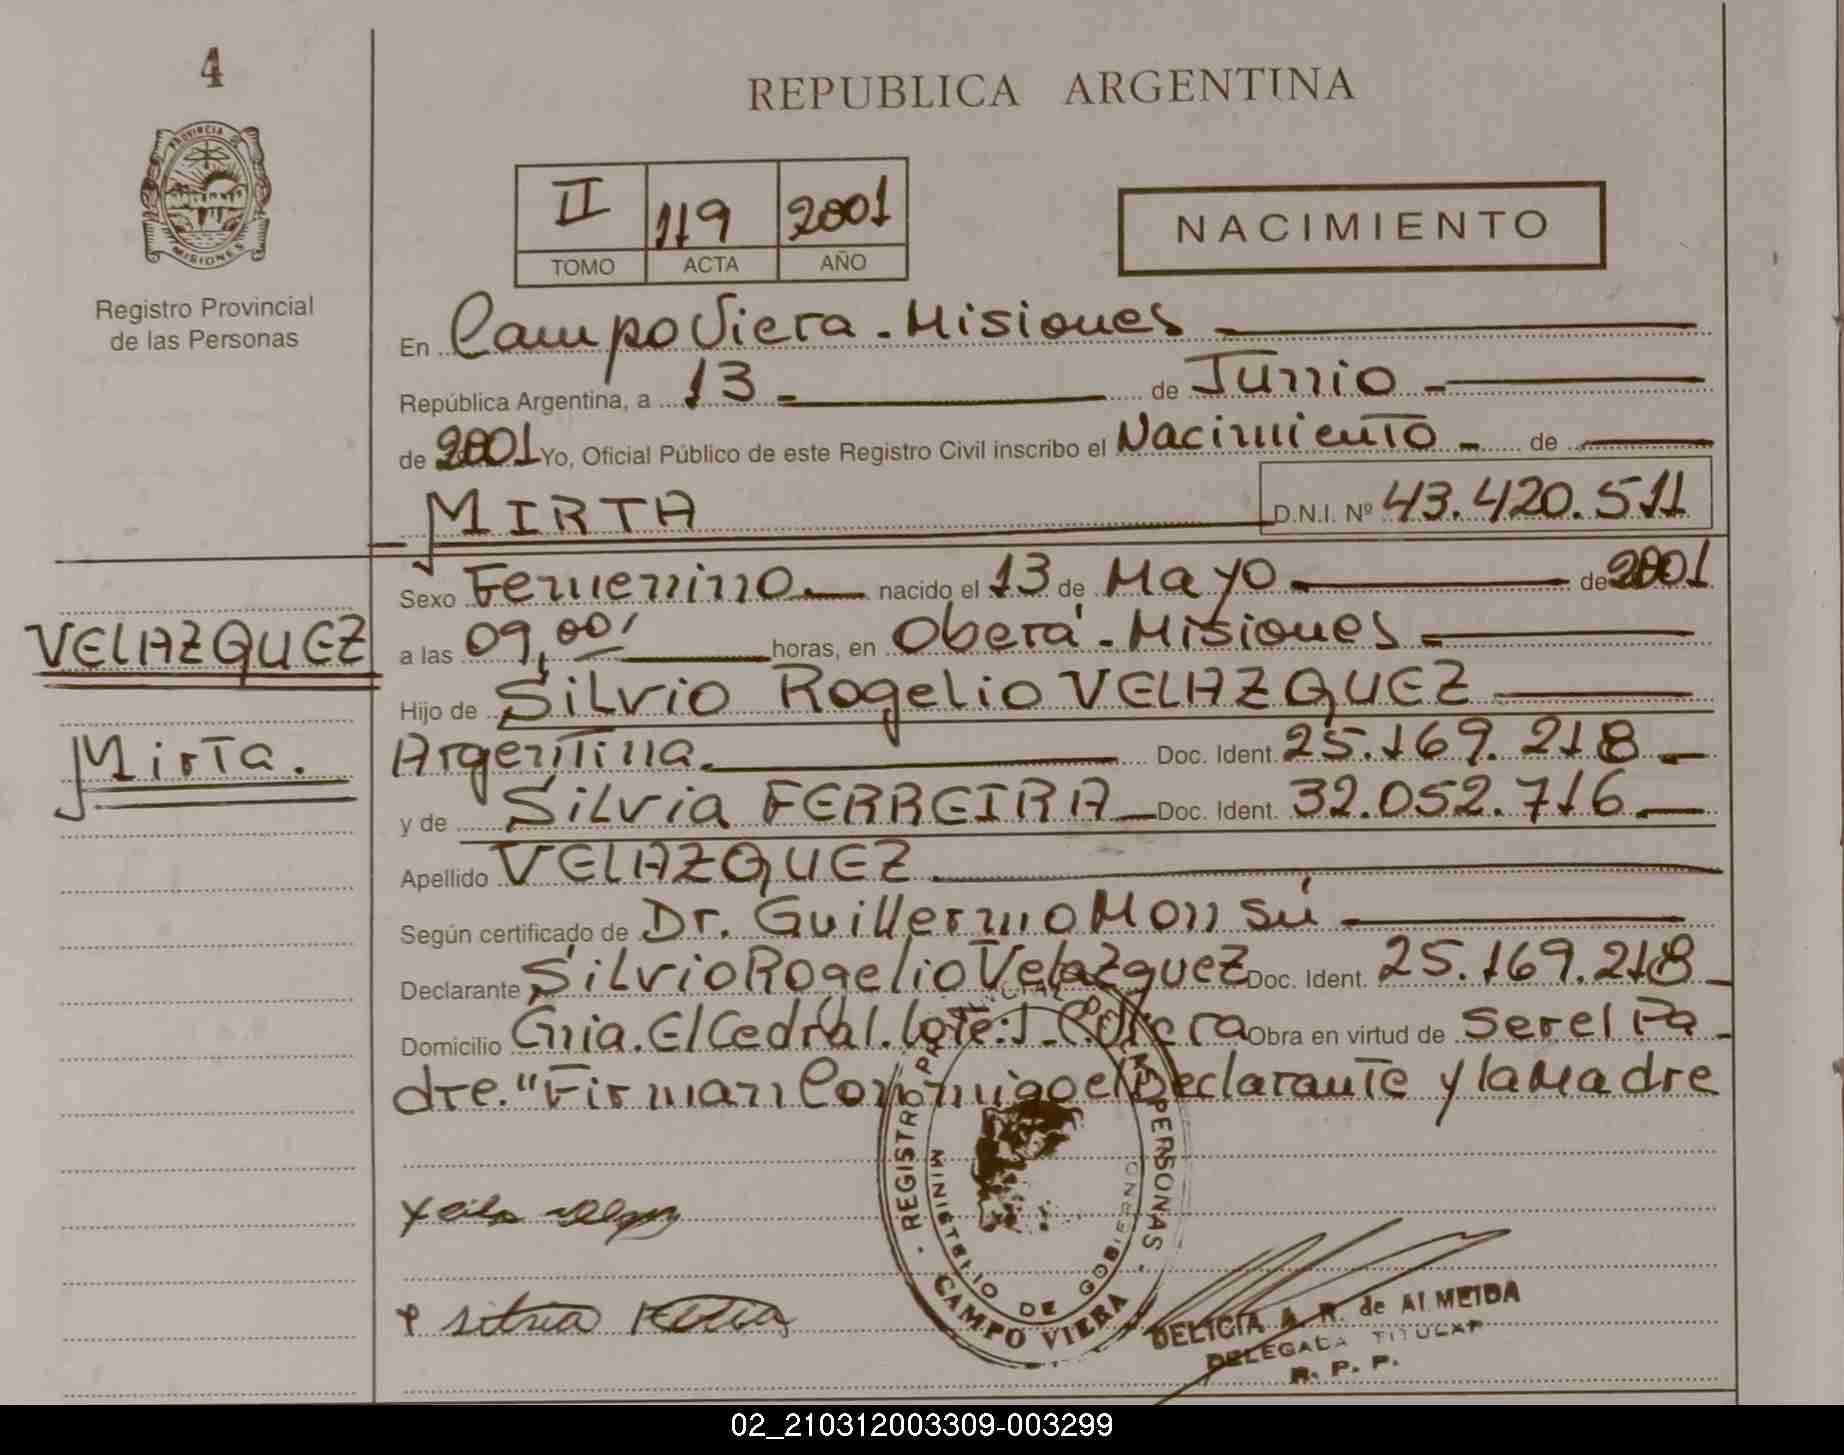 4
PROVINCIA DE
MISIONES
Registro Provincial
de las Personas
REPUBLICA ARGENTINA
II 119 2001
TOMO ACTA AÑO
NACIMIENTO
En Campo Viera - Misiones
República Argentina, a 13 de Junio
de 2001 Yo, Oficial Público de este Registro Civil inscribo el Nacimiento de
MIRTA D.N.I. Nº 43.420.511
Sexo Femenino nacido el 13 de Mayo de 2001
VELAZQUEZ
a las 09,00' horas, en Oberá - Misiones
Hijo de Silvio Rogelio VELAZQUEZ
Mirta.
Argentina. Doc. Ident. 25.169.218
y de Silvia FERREIRA Doc. Ident. 32.052.716
Apellido VELAZQUEZ
Según certificado de Dr. Guillermo Monsú
Declarante Silvio Rogelio Velazquez Doc. Ident. 25.169.218
Domicilio Cnia. El Cedral. Lote: 1 - C. Viera Obra en virtud de Ser el Pa
dre. "Firman Conmigo el Declarante y la Madre
REGISTRO PROVINCIAL DE LAS PERSONAS
MINISTERIO DE GOBIERNO
CAMPO VIERA
DELICIA A. R. de ALMEIDA
DELEGADA TITULAR
R. P. P.
02_210312003309-003299